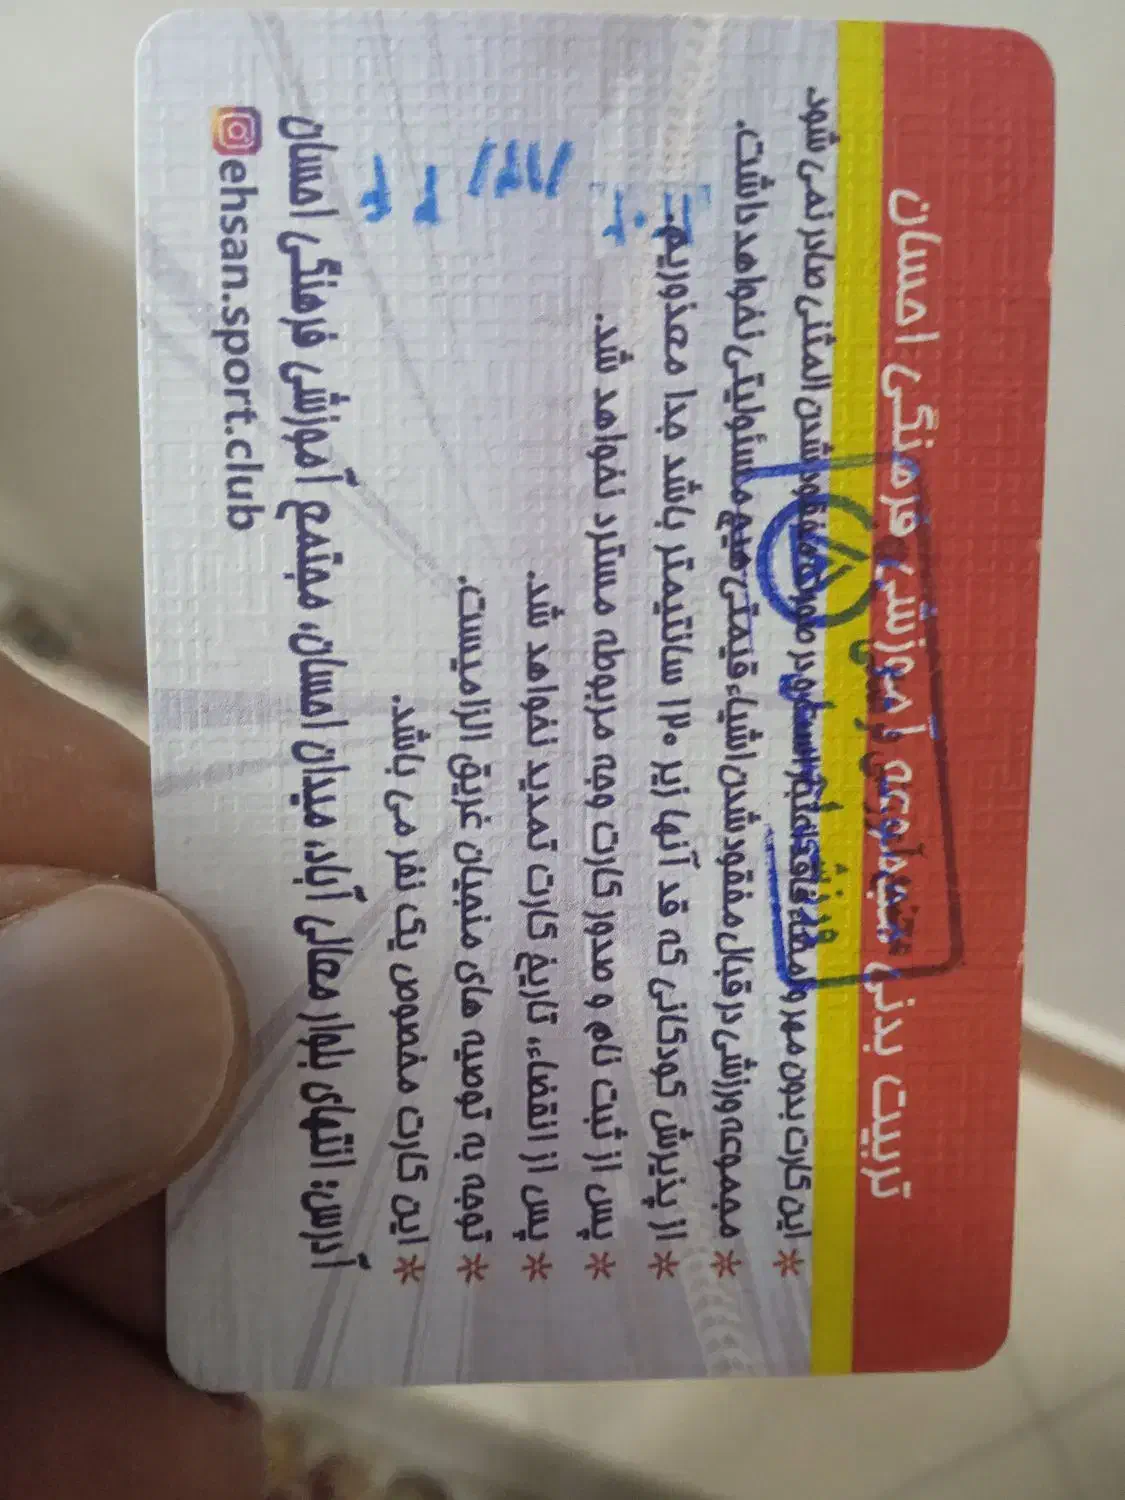 تربیت بدنی مجموعه آموزشی فرهنگی احسان
* این کارت بدون مهر و امضاء فاقد اعتبار است و در صورت مفقود شدن المثنی صادر نمی شود.
* مجموعه ورزشی در قبال مفقود شدن اشیاء قیمتی هیچ مسئولیتی نخواهد داشت.
* از پذیرش کودکانی که قد آنها زیر ۱۲۰ سانتیمتر باشد جدا معذوریم.
* پس از ثبت نام و صدور کارت وجه مربوطه مسترد نخواهد شد.
* پس از انقضاء، تاریخ کارت تمدید نخواهد شد.
* توجه به توصیه های منجیان غریق الزامیست.
* این کارت مخصوص یک نفر می باشد.
آدرس: انتهای بلوار معالی آباد، میدان احسان، مجتمع آموزشی فرهنگی احسان
ehsan.sport.club